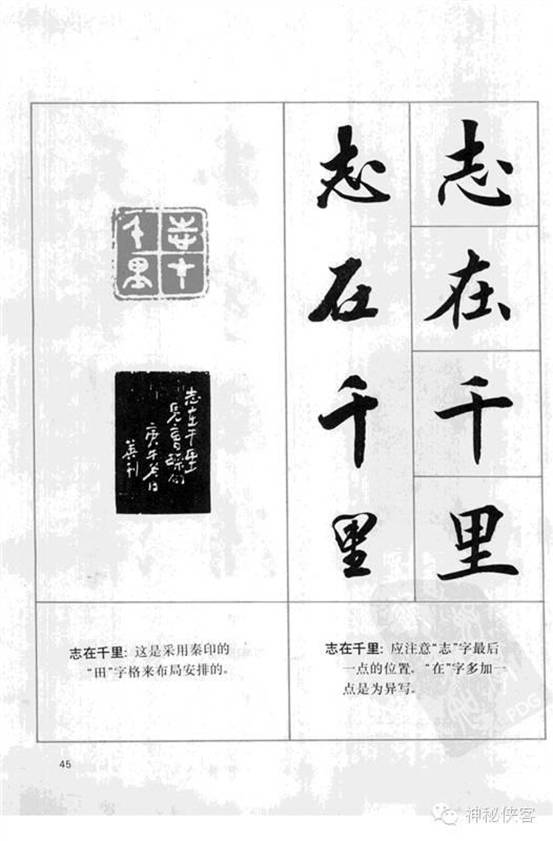 志在千里
志在千里
志在千里
志在千里
庚午
善刊
志在千里:这是采用秦印的
“田”字格来布局安排的。
志在千里:应注意“志”字最后
一点的位置,“在”字多加一
点是为异写。
45
PDG
神秘侠客